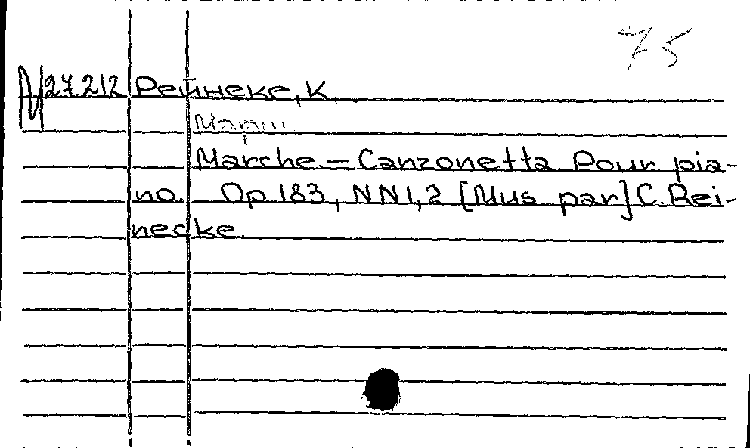 75
27.212 Рейнеке, К
Марш
Marche – Canzonetta Pour pia-
no. Op 183, NN1,2 [Mus par] C. Rei-
necke